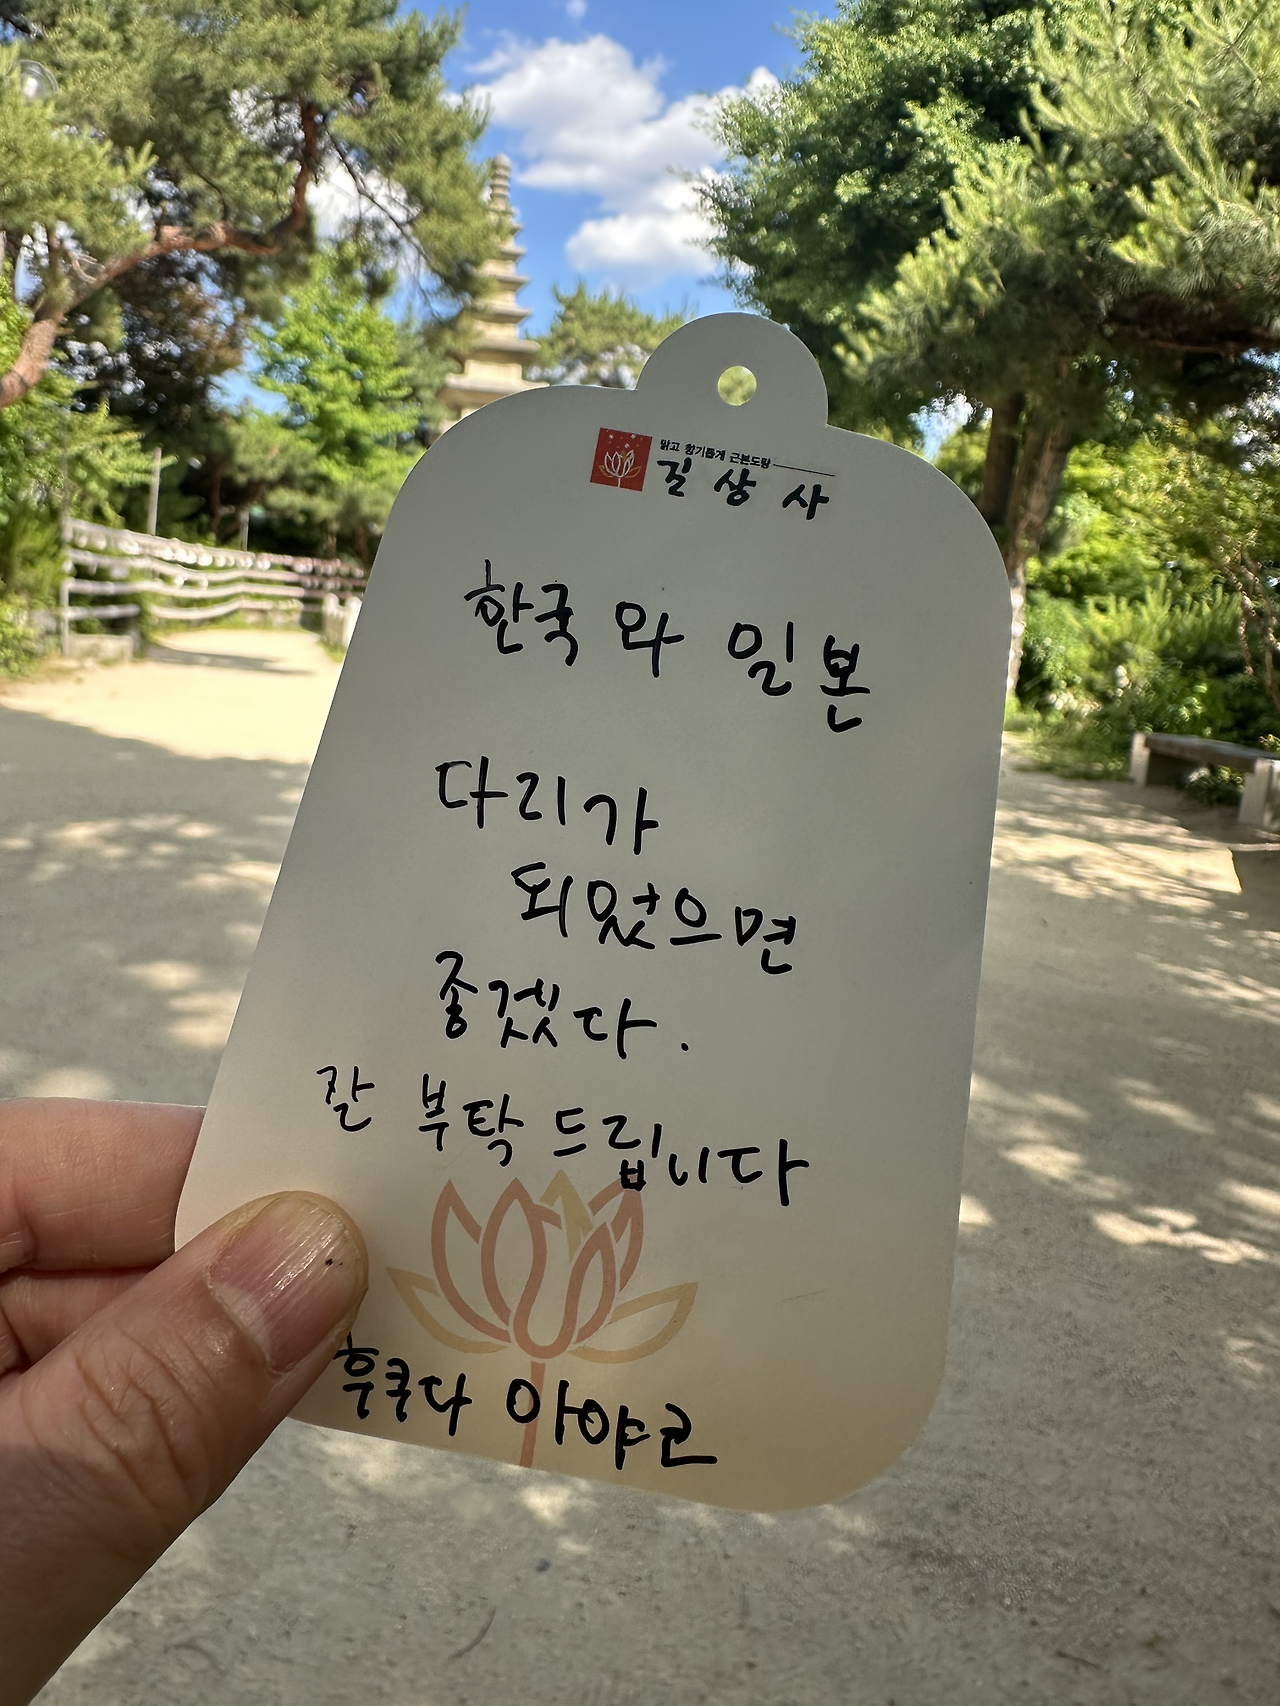 맑고 향기롭게 근본도량
길상사
한국와 일본
다리가
되었으면
좋겠다.
잘 부탁 드립니다
후쿠다 아야코